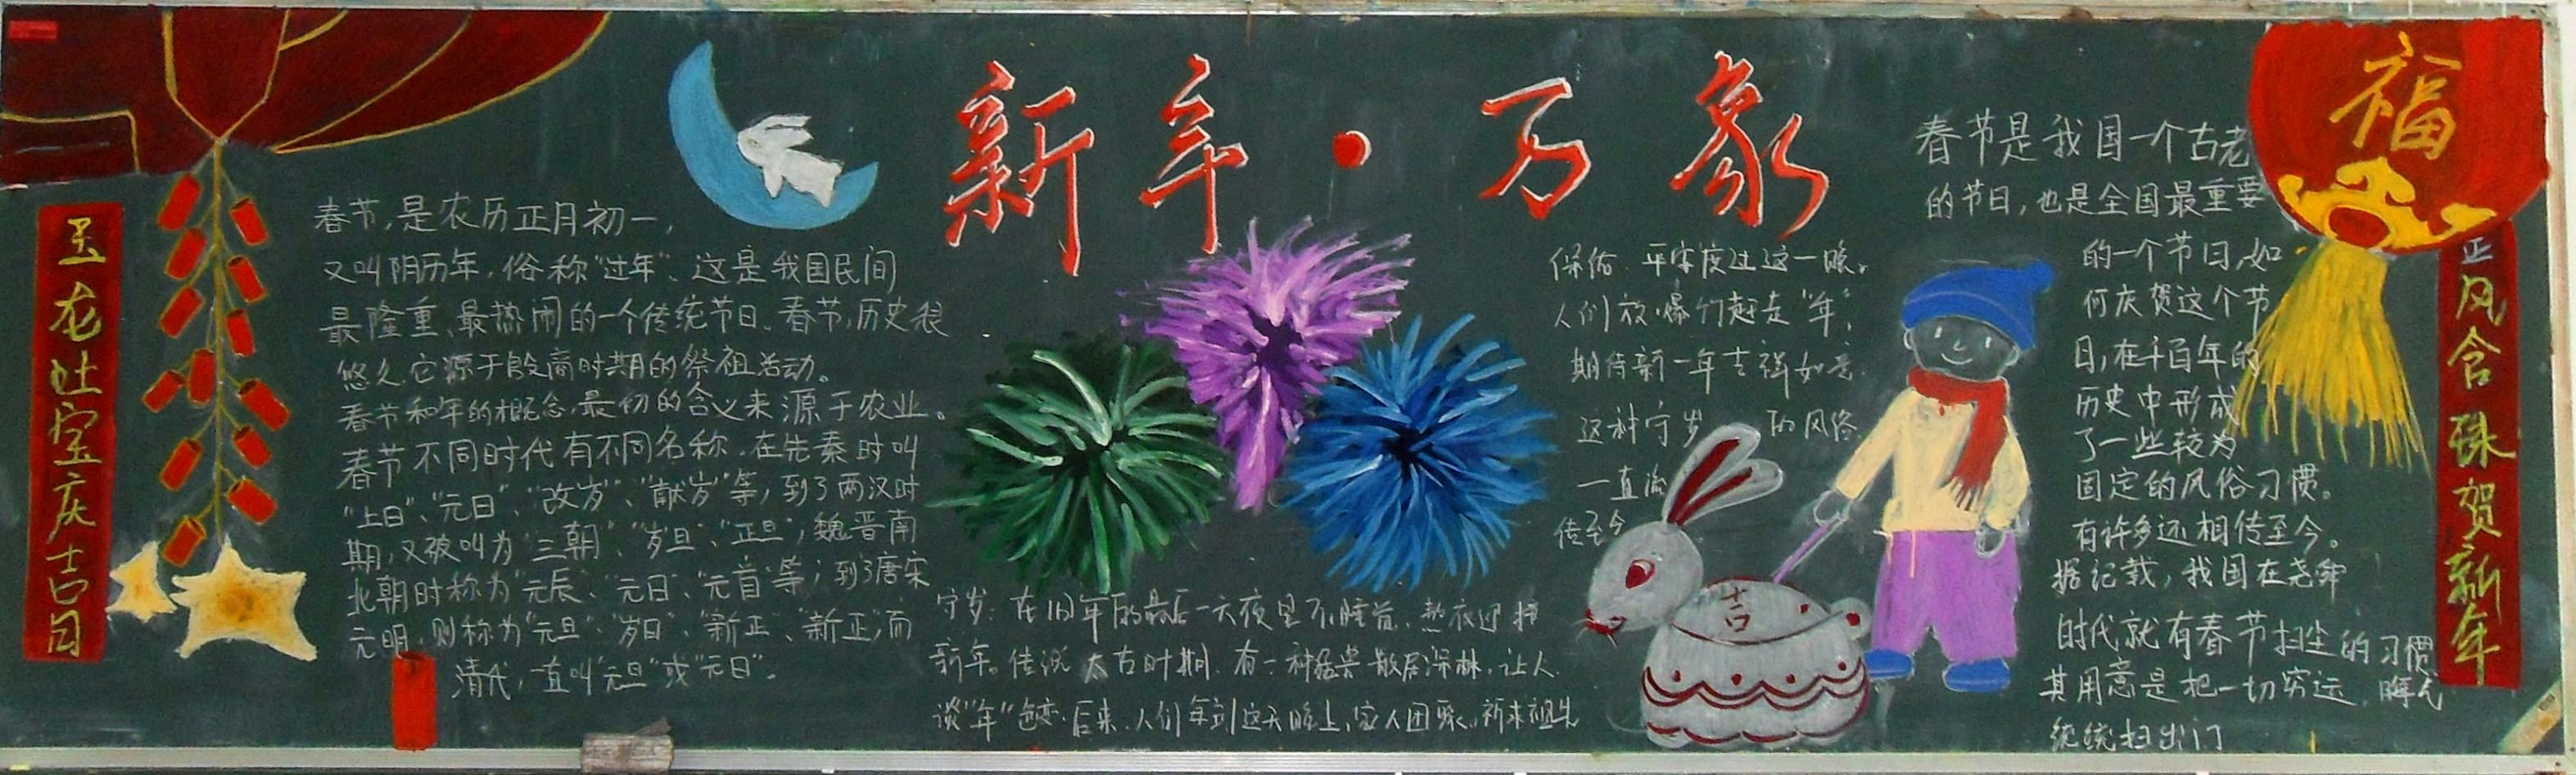 新年·万象
玉龙吐宝庆吉日
春节,是农历正月初一,
又叫阴历年,俗称"过年"、这是我国民间
最隆重、最热闹的一个传统节日。春节,历史很
悠久,它源于殷商时期的祭祖活动。
春节和年的概念,最初的含义来源于农业。
春节不同时代有不同名称.在先秦时叫
"上日"、"元日"、"改岁"、"献岁"等;到了两汉时
期,又被叫为"三朝"、"岁旦"、"正旦";魏晋南
北朝时称为"元辰"、"元日"、"元首"等;到了唐宋
元明,则称为"元旦"、"岁日"、"新正"、"新正";而
清代,一直叫"元旦"或"元日".
守岁:在旧年的最后一天夜里不睡觉,熬夜迎接
新年。传说太古时期,有一种猛兽散居深林,让人
谈"年"色变.后来,人们每到这天晚上,家人团聚,祈求祖先
保佑.平安度过这一晚。
人们放爆竹赶走"年",
期待新一年吉祥如意.
这种守岁的风俗
一直流
传至今
吉
春节是我国一个古老
的节日,也是全国最重要
的一个节日,如
何庆贺这个节
日,在千百年的
历史中形成
了一些较为
固定的风俗习惯。
有许多还相传至今。
据记载,我国在尧舜
时代就有春节扫尘的习惯
其用意是把一切穷运,晦气
统统扫出门
福
风含珠贺新年